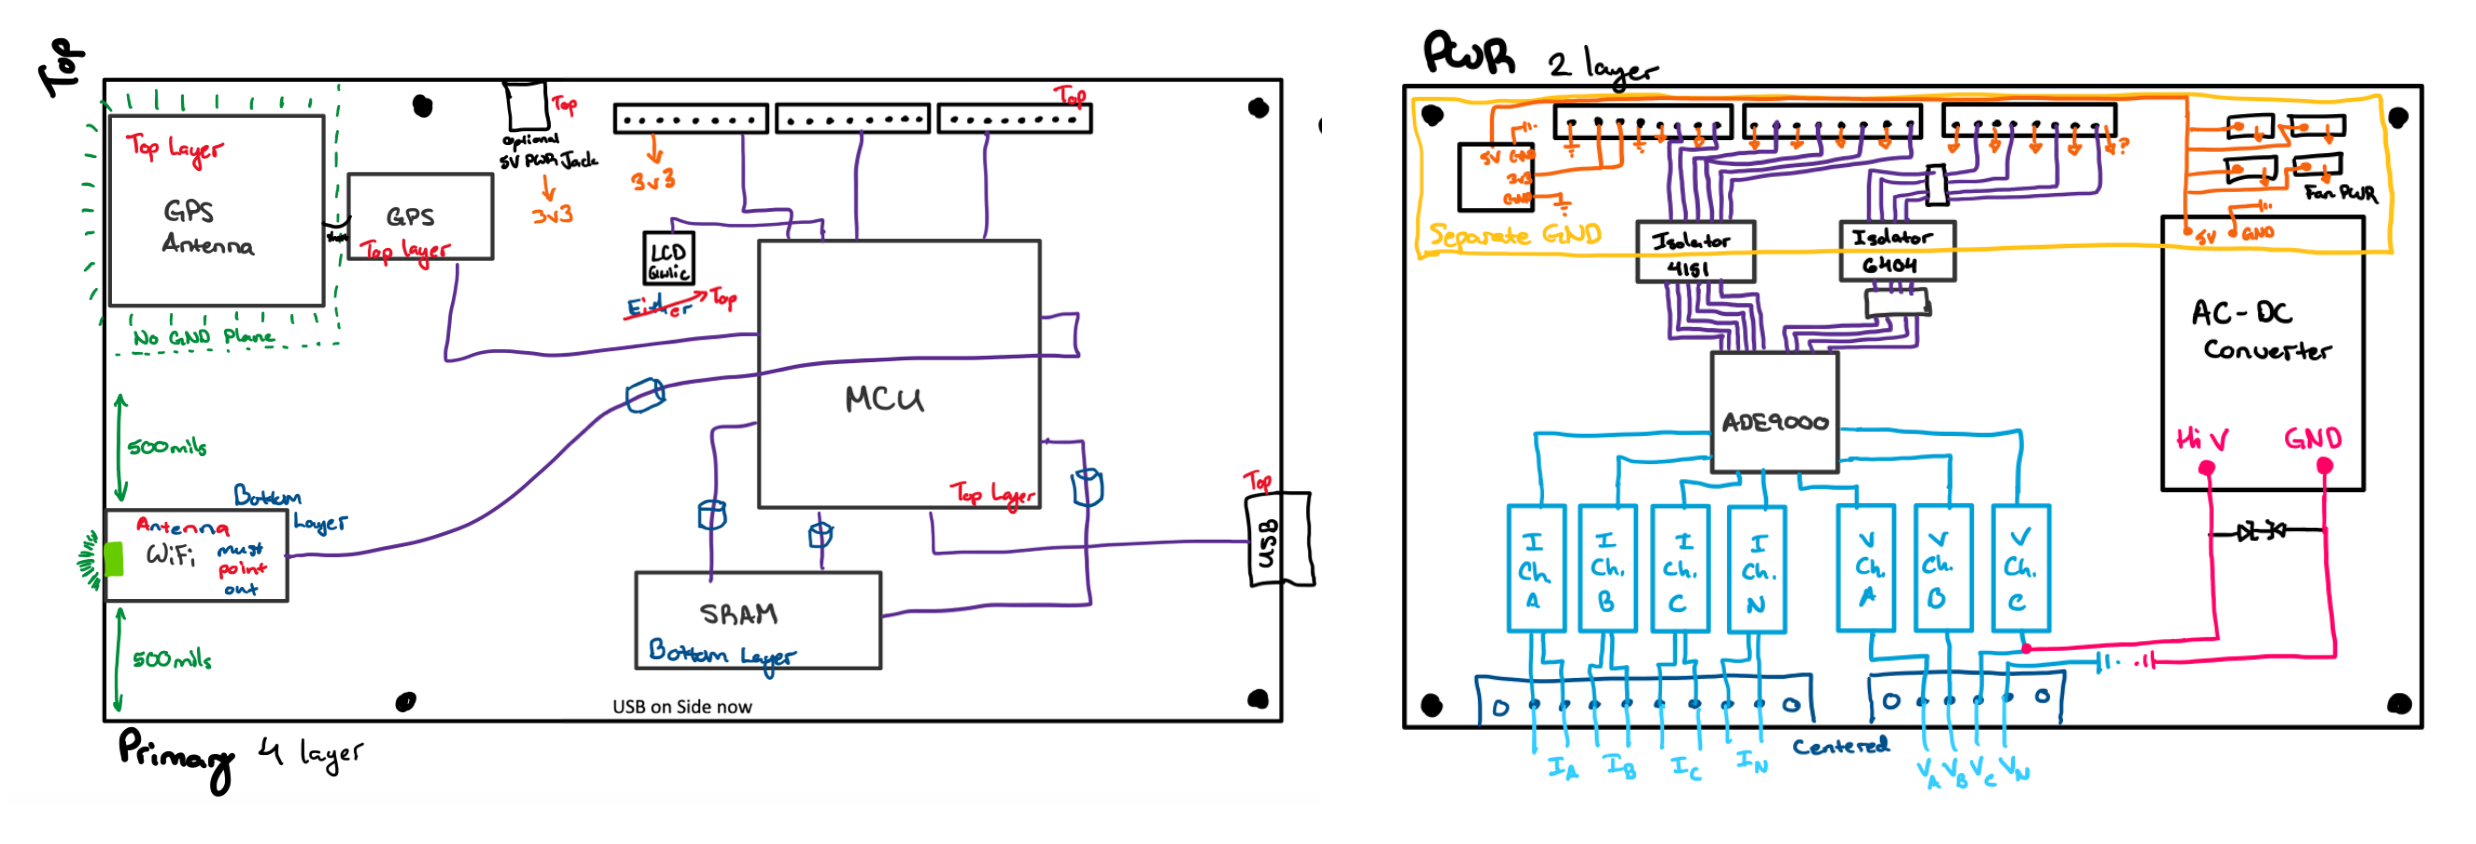 Top
Top Layer
GPS
Antenna
No GND Plane
GPS
Top layer
Top
optional
5V PWR Jack
3v3
Top
3v3
LCD
Qwiic
Either
Top
MCU
Top Layer
500mils
Bottom
Layer
Antenna
WiFi
must
point
out
500mils
SRAM
Bottom Layer
Top
USB
USB on Side now
Primary 4 layer
PWR 2 layer
5V GND
3v3
GND
Separate GND
?
Fan PWR
5V GND
Isolator
4151
Isolator
6404
AC-DC
Converter
Hi V
GND
ADE9000
I
Ch.
A
I
Ch.
B
I
Ch.
C
I
Ch.
N
V
Ch.
A
V
Ch.
B
V
Ch.
C
Centered
IA
IB
IC
IN
VA
VB
VC
VN